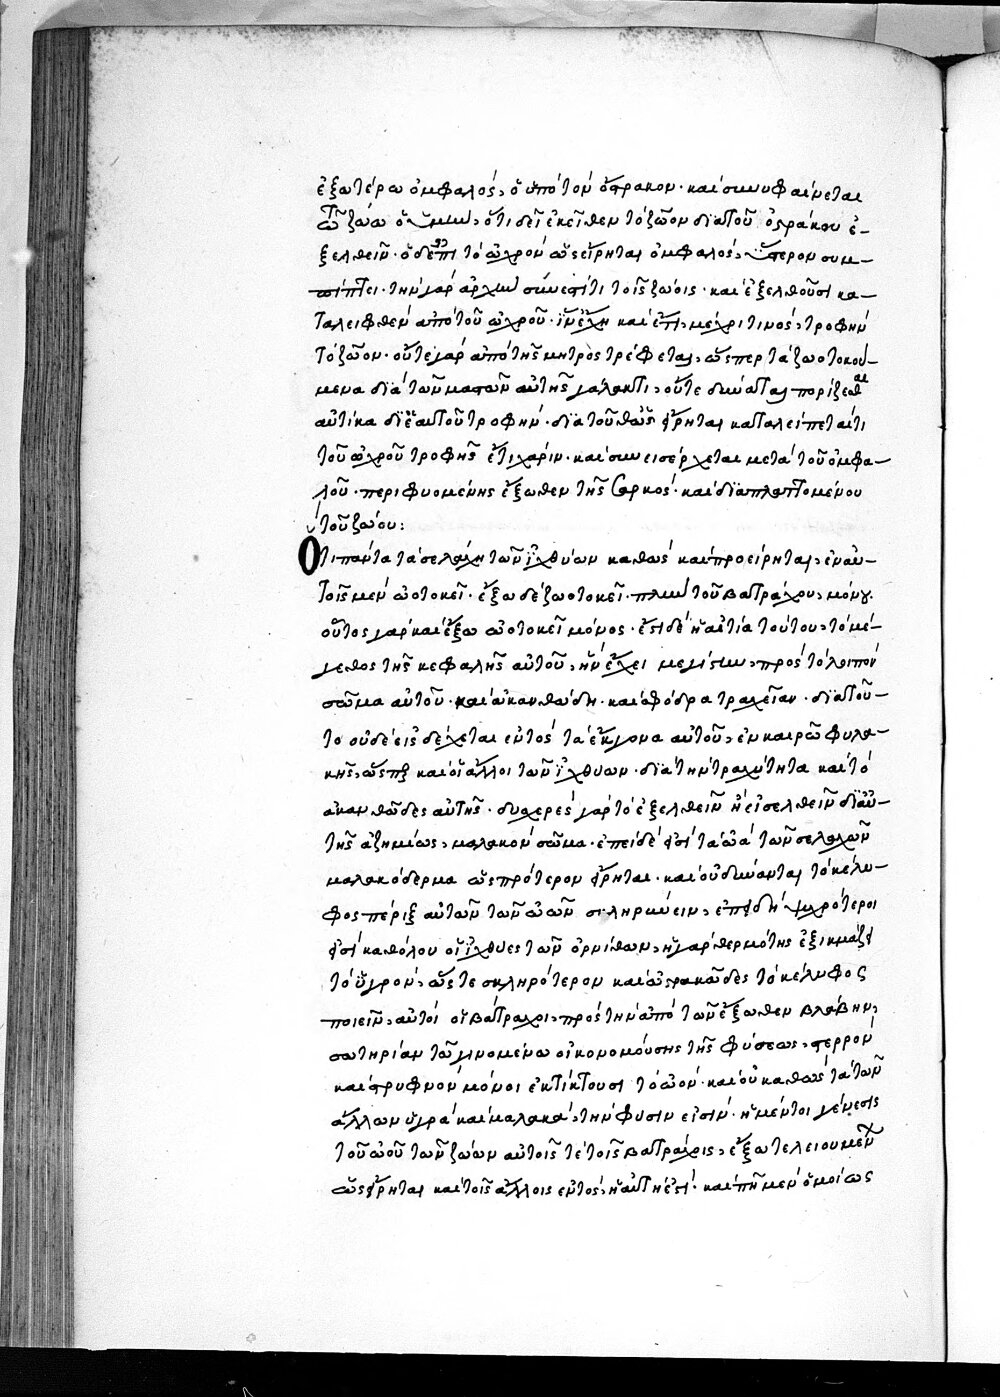 ἐξωτέρω ὀμφαλός, ὁ ὑπὸ τὸν ὄστρακον· καὶ συνυφαίνεται
τῷ ζώῳ ὁ ὑμήν, ὅτι δεῖ ἐκεῖθεν τὸ ζῶον διὰ τοῦ ὀστράκου ἐ-
ξελθεῖν. ὁ δὲ ἐπὶ τὸ ὠχρὸν ὡς εἴρηται ὀμφαλός, ὕστερον συμ-
πίπτει. τὴν γὰρ ἀρχὴν σύνεστί τι τοῖς ζώοις· καὶ ἐξελθοῦσι κα-
ταλειφθὲν ἀπὸ τοῦ ὠχροῦ· ἵν' ἔχῃ καὶ ἔτι μέχρι τινὸς, τροφὴν
τὸ ζῶον· οὔτε γὰρ ἀπὸ τῆς μητρὸς τρέφεται, ὥσπερ τὰ ζωοτοκού-
μενα διὰ τῶν μαστῶν αὐτῆς γάλακτι, οὔτε δύναται πορίζεσθαι
αὐτίκα δι' ἑαυτοῦ τροφήν· διὰ τοῦθ' ὡς εἴρηται καταλείπεταί τι
τοῦ ὠχροῦ τροφῆς ἔτι χάριν· καὶ συνεισέρχεται μετὰ τοῦ ὀμφα-
λοῦ· περιφυομένης ἔξωθεν τῆς σαρκὸς· καὶ διαπλαττομένου
τοῦ ζώου:
Ὅτι πάντα τὰ σελάχη τῶν ἰχθύων καθὼς καὶ προείρηται, ἐν αὑ-
τοῖς μὲν ὠοτοκεῖ· ἔξω δὲ ζωοτοκεῖ· πλὴν τοῦ βατράχου, μόνου.
οὗτος γὰρ καὶ ἔξω ὠοτοκεῖ μόνος· ἔστι δὲ ἡ αἰτία τούτου, τὸ μέ-
γεθος τῆς κεφαλῆς αὐτοῦ, ἣν ἔχει μεγίστην, πρὸς τὸ λοιπὸν
σῶμα αὐτοῦ· καὶ ἀκανθώδη· καὶ σφόδρα τραχεῖαν· διὰ τοῦ-
το οὐδὲ εἰσδέχεται ἐντὸς τὰ ἔκγονα αὐτοῦ, ἐν καιρῷ φυλα-
κῆς, ὥσπερ καὶ οἱ ἄλλοι τῶν ἰχθύων· διὰ τὴν τραχύτητα καὶ τὸ
ἀκανθῶδες αὐτῆς· δυσχερὲς γὰρ τὸ ἐξελθεῖν ἢ εἰσελθεῖν δι' αὐ-
τῆς ἀζημίως, μαλακὸν σῶμα· ἐπεὶ δέ εἰσι τὰ ὠὰ τῶν σελαχῶν
μαλακόδερμα ὡς πρότερον εἴρηται· καὶ οὐ δύνανται τὸ κέλυ-
φος πέριξ αὐτῶν τῶν ὠῶν σκληρύνειν, ἐπειδὴ ψυχρότεροι
εἰσὶ καθόλου οἱ ἰχθύες τῶν ὀρνίθων, ἡ γὰρ θερμότης ἐξικμάζει
τὸ ὑγρόν, ὥστε σκληρότερον καὶ ὀστρακῶδες τὸ κέλυφος
ποιεῖν, αὐτοὶ οἱ βάτραχοι, πρὸς τὴν ἀπὸ τῶν ἔξωθεν βλάβην,
σωτηρίαν τῶ γινομένω οἰκονομούσης τῆς φύσεως, στερρὸν
καὶ στρυφνὸν μόνοι ἐκτίκτουσι τὸ ὠόν· καὶ οὐ καθὼς τὰ τῶν
ἄλλων ὑγρὰ καὶ μαλακὰ, τὴν φύσιν εἰσίν. ἡ μέντοι γένεσις
τοῦ ὠοῦ τῶν ζώων αὐτοῖς τε τοῖς βατράχοις, ἔξω τελειουμένων
ὡς εἴρηται καὶ τοῖς ἄλλοις ἐντὸς, ἡ αὐτή ἐστι· καὶ πῆ μὲν ὁμοίως